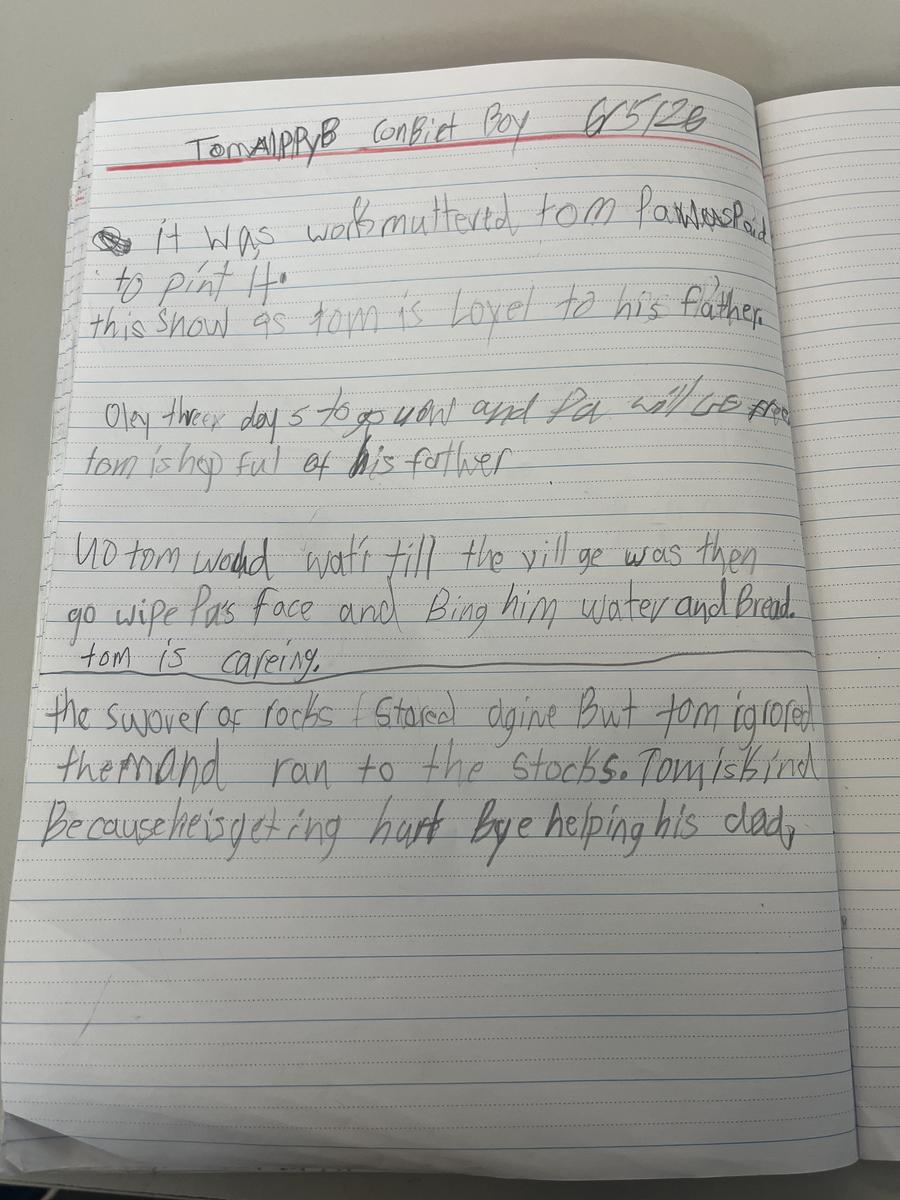 TomAppyB ConBiet Boy 6/5/26
it was work muttered tom Pa was Paid
to pint it.
this Show as tom is Loyel to his father.
Oley threex day s to go uow and Pa will Be free
tom is hop ful of his father
uo tom woud wati till the villge was then
go wipe Pa's face and Bing him water and Bread.
tom is careing.
the swover of rocks Stared agine But tom igrored
them and ran to the stocks. Tom is kind
Because he is geting hurt Bye helping his dad,